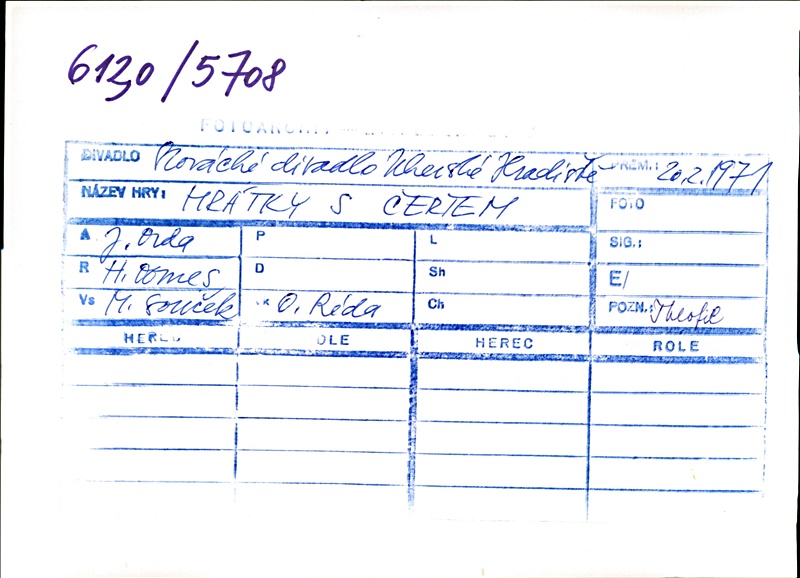 6130/5708
FOTOARCHIV
DIVADLO Slovácké divadlo Uherské Hradiště PREM.: 20.2.1971
NÁZEV HRY: HRÁTKY S ČERTEM FOTO
A J. Drda P L SIG.:
R H. Domes D Sh E/
Vs M. Souček K O. Réda Ch POZN.: Theofil
HEREC ROLE HEREC ROLE